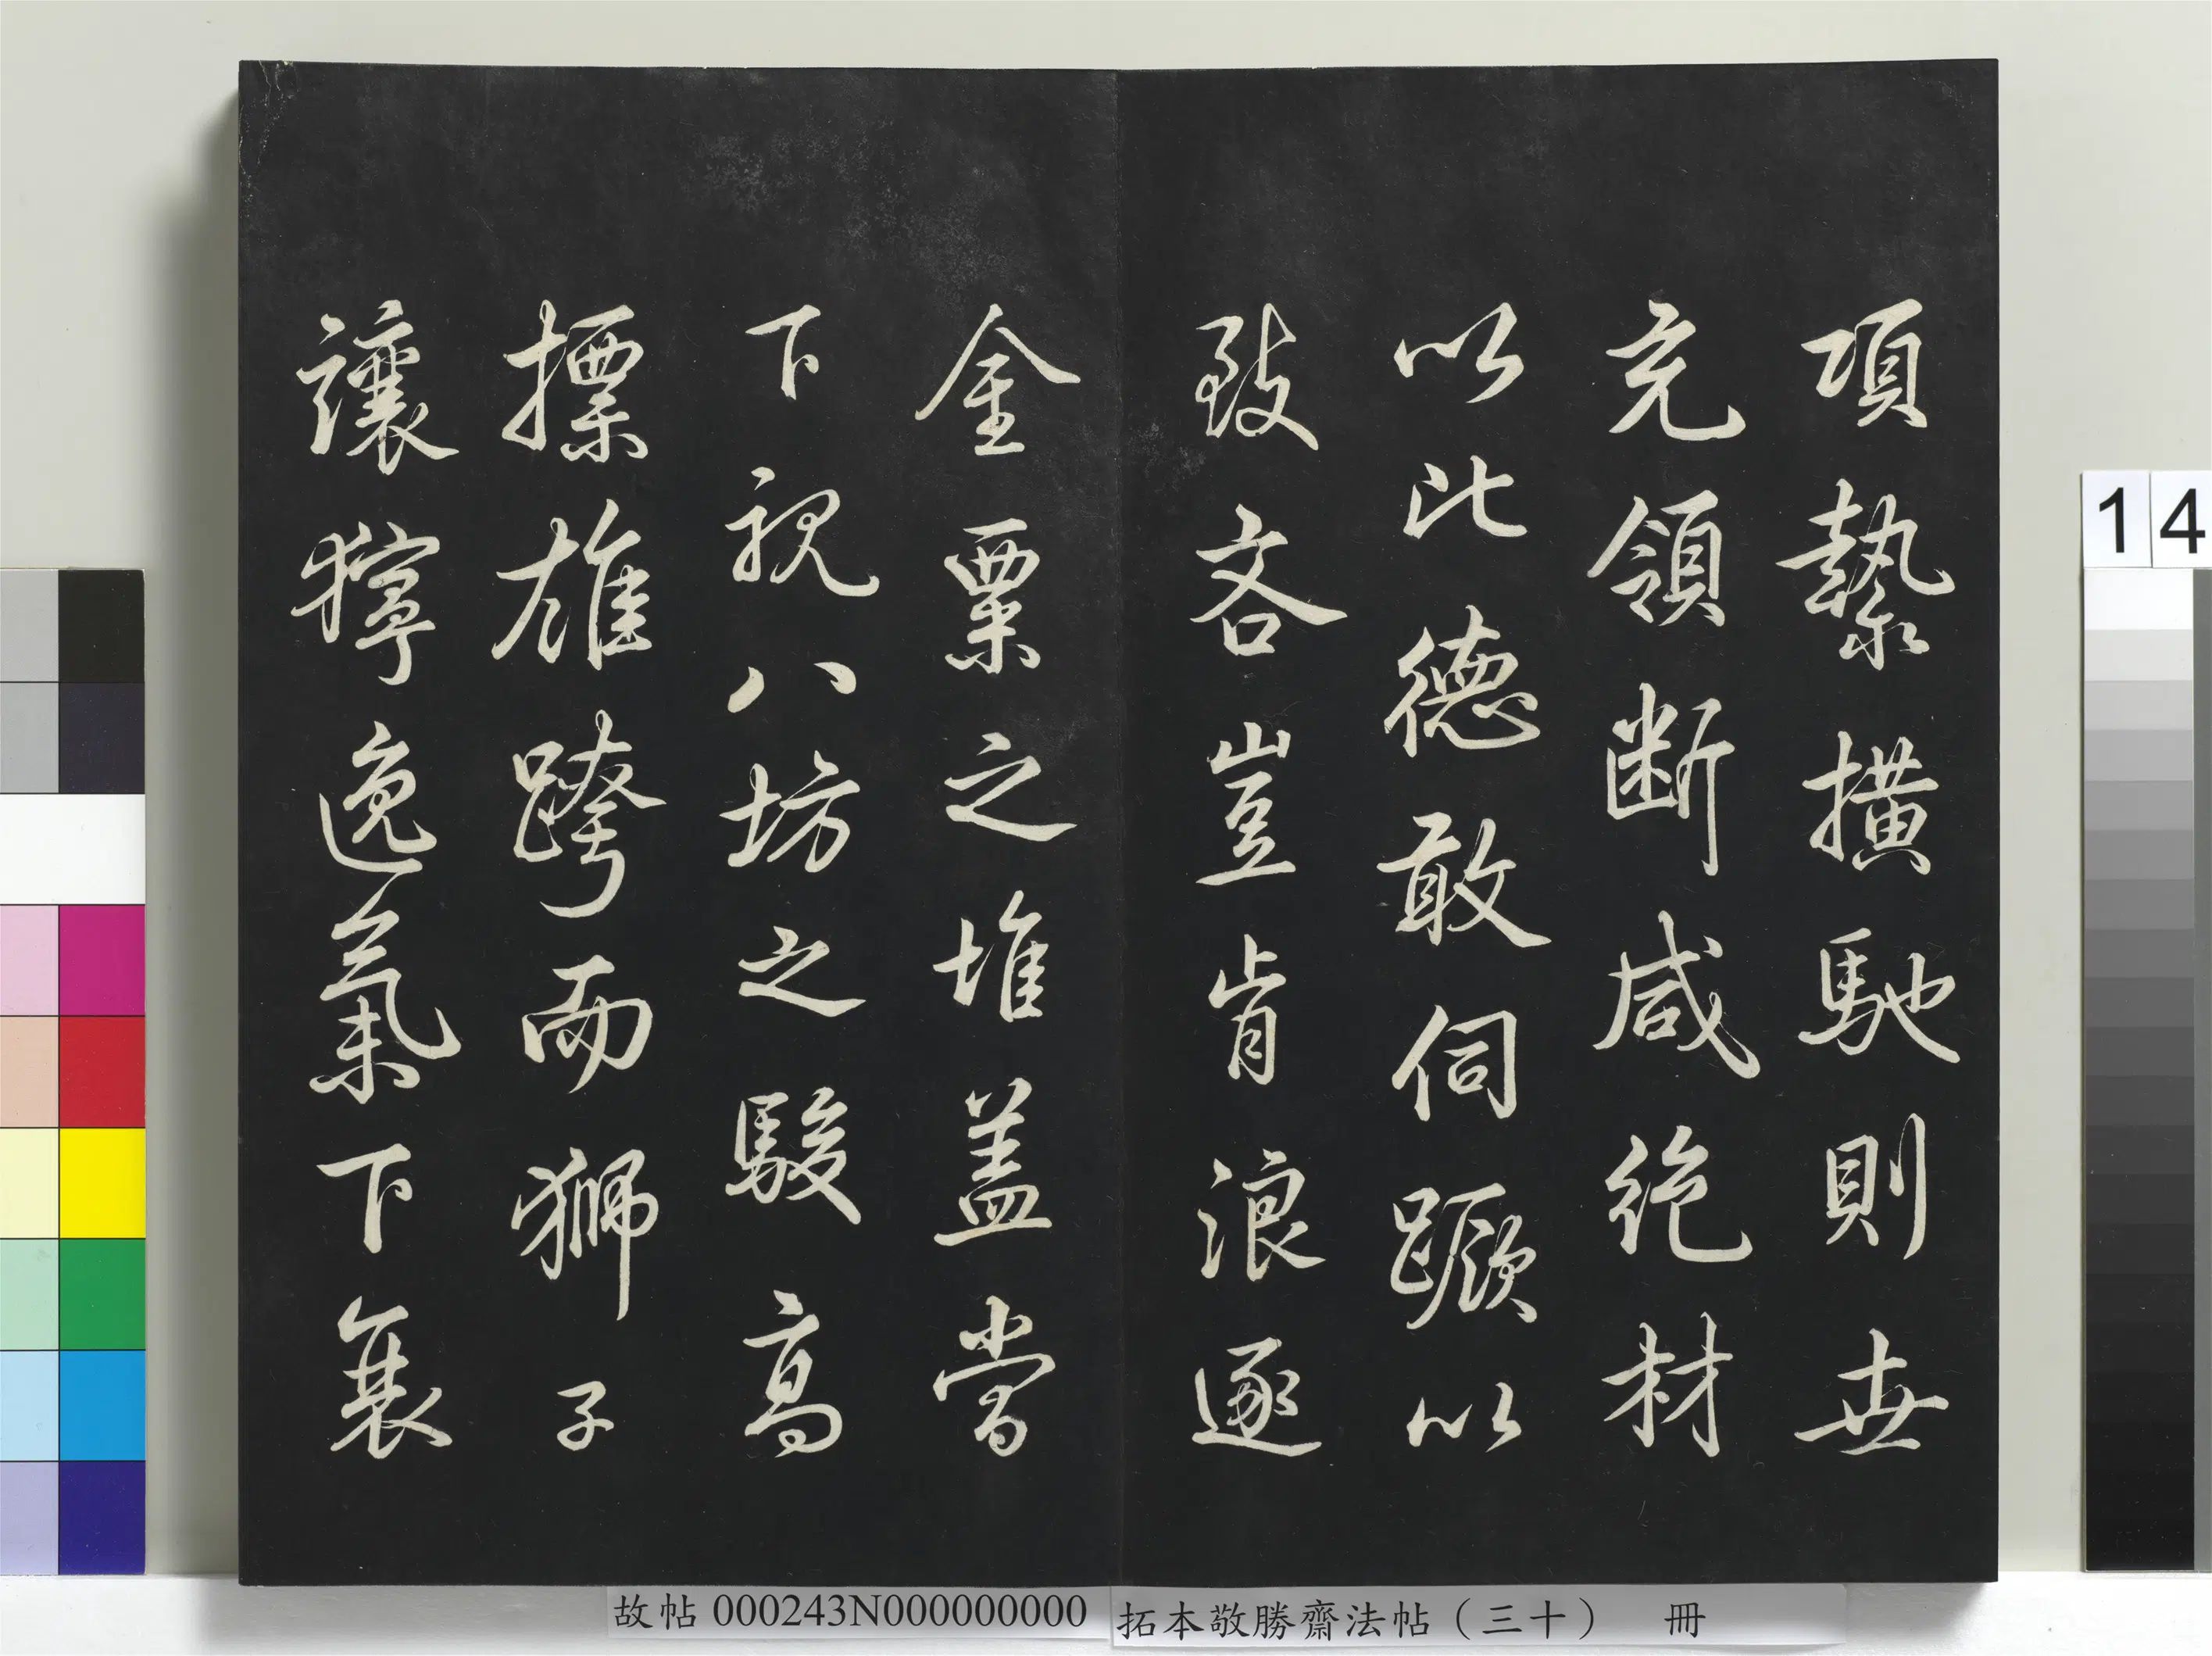 項縶撗馳則世
充領断咸絶材
以比德敢伺蹶以
致吝豈肯浪逐
金粟之堆盖嘗
下視八坊之駿高
摽雄跨而獅子
讓獰逸氣下衰
14
故帖 000243N000000000
拓本敬勝齋法帖（三十） 冊